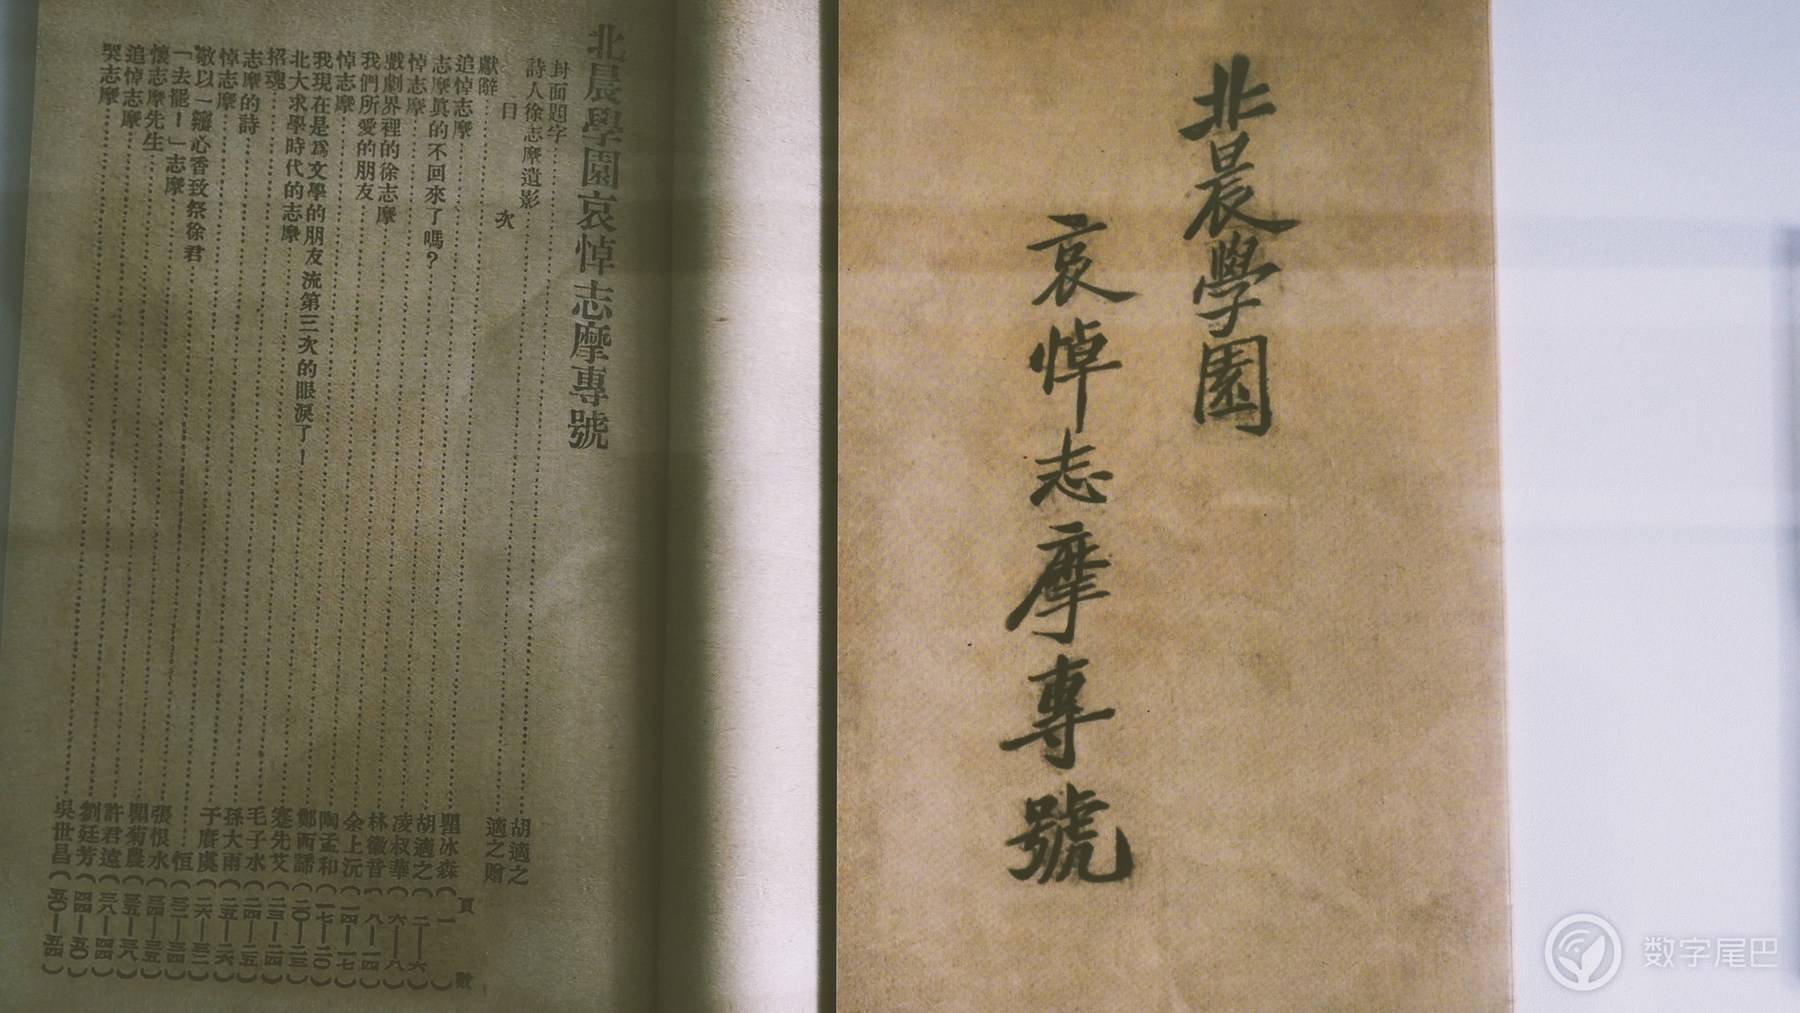 北晨學園
哀悼志摩專號
北晨學園哀悼志摩專號
封面題字……胡適之
詩人徐志摩遺影……適之贈
目次
頁數
獻辭……瞿冰森(一)
追悼志摩……胡適之(二—六)
志摩真的不回來了嗎?……凌叔華(六—八)
悼志摩……林徽音(八—一四)
戲劇界裡的徐志摩……余上沅(一四—一七)
我們所愛的朋友……陶孟和(一七—二〇)
悼志摩……鄭西諦(二〇—二三)
我現在是爲文學的朋友流第三次的眼淚了!……蹇先艾(二三—二四)
北大求學時代的志摩……毛子水(二四—二五)
招魂……孫大雨(二五—二六)
志摩的詩……于賡虞(二六—三三)
悼志摩……恒(三一—三四)
敬以一瓣心香致祭徐君……張恨水(三四—三五)
「去罷!」志摩……瞿菊農(三五—三八)
懷志摩先生……許君遠(三八—四四)
追悼志摩……劉廷芳(四四—五〇)
哭志摩……吳世昌(五〇—五四)
数字尾巴